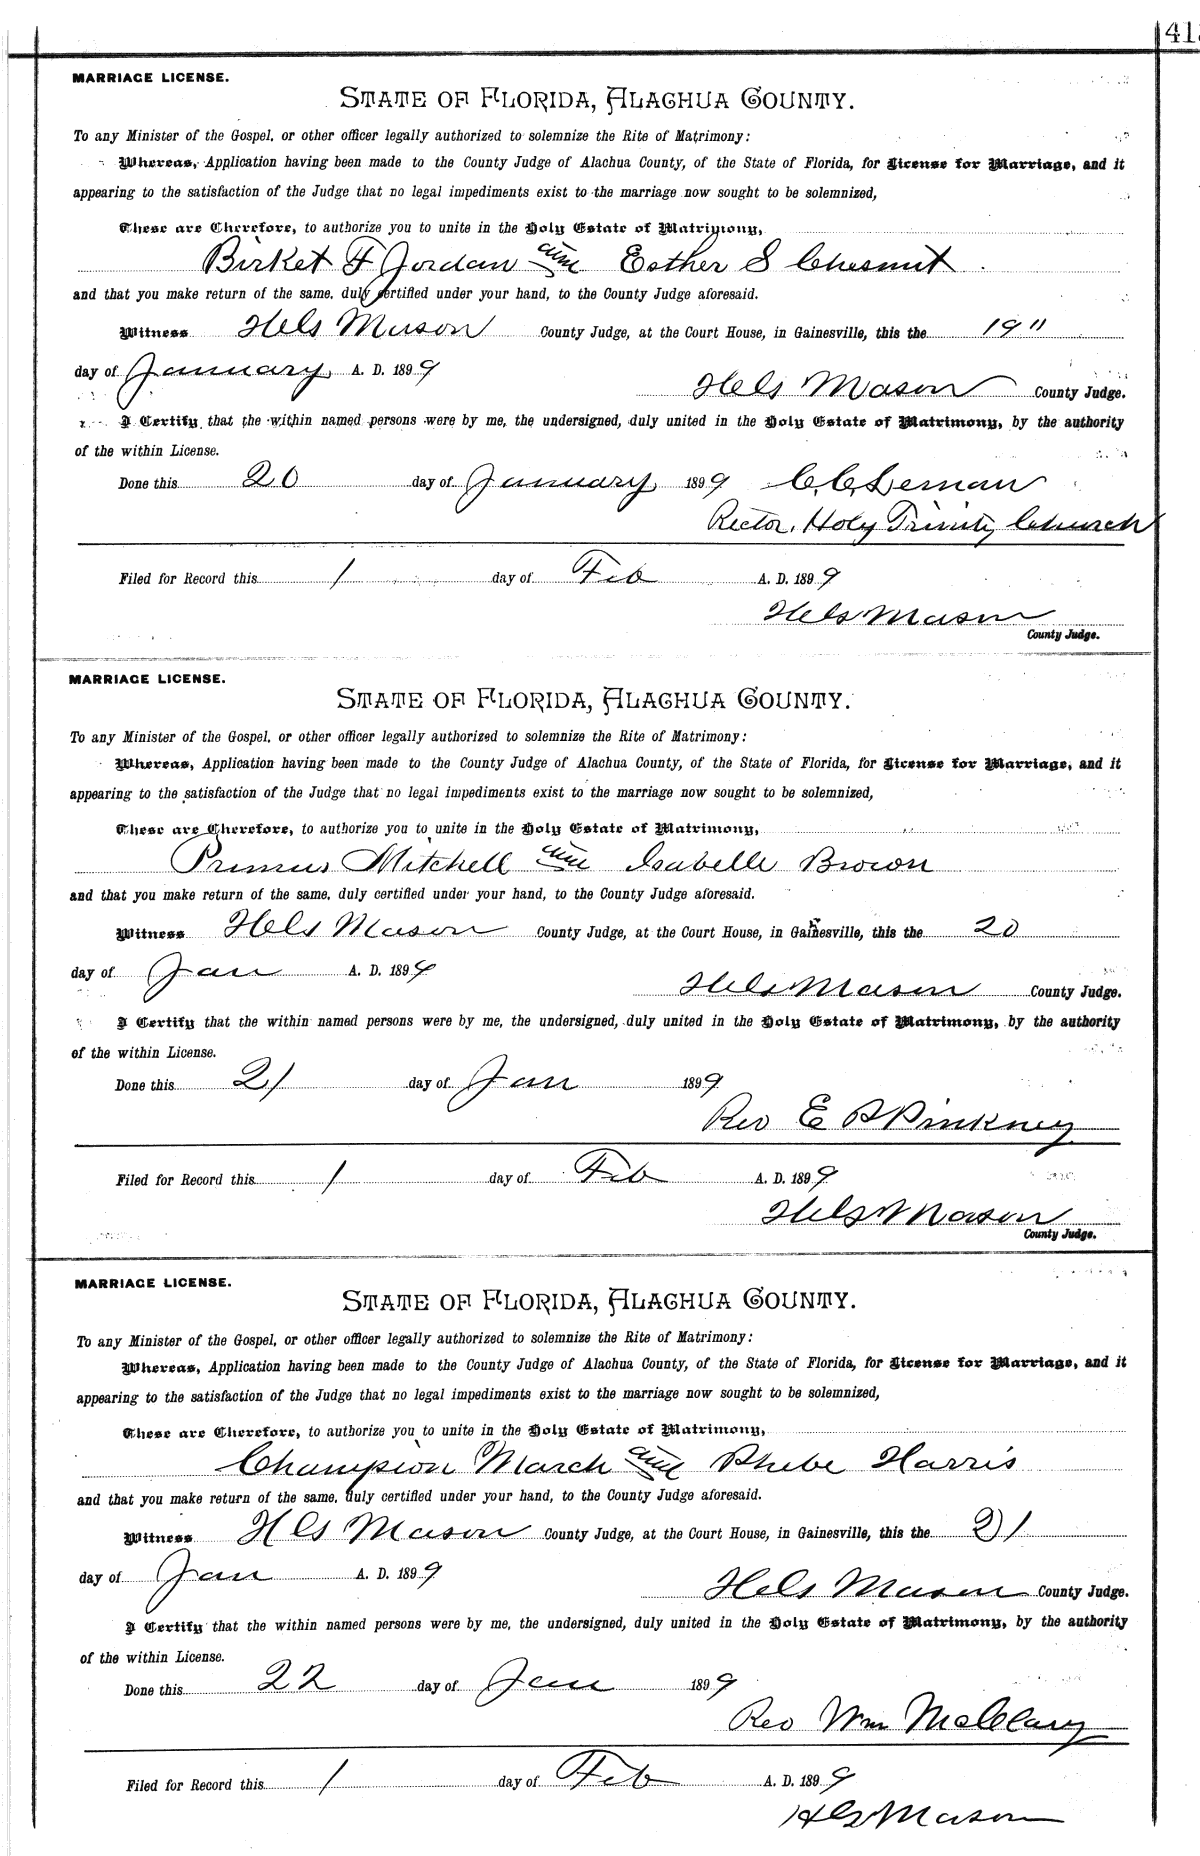 MARRIAGE LICENSE.
STATE OF FLORIDA, ALACHUA COUNTY.
To any Minister of the Gospel, or other officer legally authorized to solemnize the Rite of Matrimony:
Whereas, Application having been made to the County Judge of Alachua County, of the State of Florida, for License for Marriage, and it
appearing to the satisfaction of the Judge that no legal impediments exist to the marriage now sought to be solemnized,
These are Therefore, to authorize you to unite in the Holy Estate of Matrimony,
Birket F Jordan and Esther S Chesnut
and that you make return of the same, duly certified under your hand, to the County Judge aforesaid.
Witness H Mason County Judge, at the Court House, in Gainesville, this the 19"
day of January A. D. 1899
Mason County Judge.
I Certify that the within named persons were by me, the undersigned, duly united in the Holy Estate of Matrimony, by the authority
of the within License.
Done this 20 day of January 1899 C. C. Leman
Rector, Holy Trinity Church
Filed for Record this 1 day of Feb A. D. 1899
Mason
County Judge.
MARRIAGE LICENSE.
STATE OF FLORIDA, ALACHUA COUNTY.
To any Minister of the Gospel, or other officer legally authorized to solemnize the Rite of Matrimony:
Whereas, Application having been made to the County Judge of Alachua County, of the State of Florida, for License for Marriage, and it
appearing to the satisfaction of the Judge that no legal impediments exist to the marriage now sought to be solemnized,
These are Therefore, to authorize you to unite in the Holy Estate of Matrimony,
Primus Mitchell and Isabelle Brown
and that you make return of the same, duly certified under your hand, to the County Judge aforesaid.
Witness Mason County Judge, at the Court House, in Gainesville, this the 20
day of Jan A. D. 1899
Mason County Judge.
I Certify that the within named persons were by me, the undersigned, duly united in the Holy Estate of Matrimony, by the authority
of the within License.
Done this 21 day of Jan 1899
Rev E P Pinkney
Filed for Record this 1 day of Feb A. D. 1899
Mason
County Judge.
MARRIAGE LICENSE.
STATE OF FLORIDA, ALACHUA COUNTY.
To any Minister of the Gospel, or other officer legally authorized to solemnize the Rite of Matrimony:
Whereas, Application having been made to the County Judge of Alachua County, of the State of Florida, for License for Marriage, and it
appearing to the satisfaction of the Judge that no legal impediments exist to the marriage now sought to be solemnized,
These are Therefore, to authorize you to unite in the Holy Estate of Matrimony,
Champion March and Phebe Harris
and that you make return of the same, duly certified under your hand, to the County Judge aforesaid.
Witness Mason County Judge, at the Court House, in Gainesville, this the 21
day of Jan A. D. 1899
Mason County Judge.
I Certify that the within named persons were by me, the undersigned, duly united in the Holy Estate of Matrimony, by the authority
of the within License.
Done this 22 day of Jan 1899
Rev Wm McClary
Filed for Record this 1 day of Feb A. D. 1899
Mason